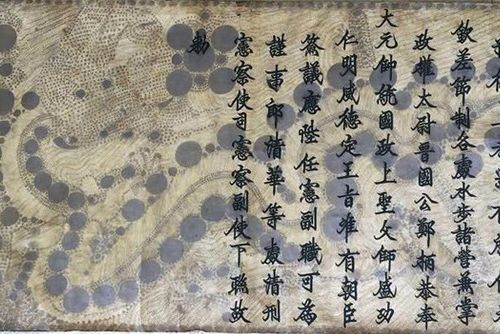 欽差節制各處水步諸營兼掌
政權太尉晉國公鄭柄恭奉
大元帥統國政上聖父師盛功
仁明威德定王旨准有朝臣
僉議應陞任憲副職可為
謹事郎清華等處清刑
憲察使司憲察副使下聯故
勑